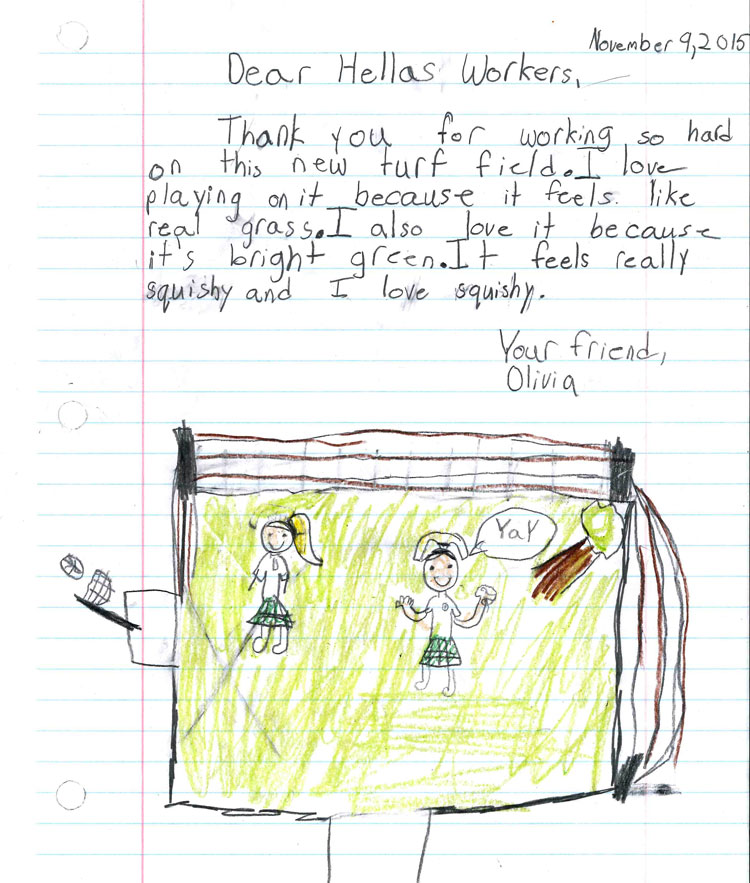 November 9, 2015
Dear Hellas Workers,
Thank you for working so hard
on this new turf field. I love
playing on it because it feels. like
real grass. I also love it because
it's bright green. It feels really
squishy and I love squishy.
Your friend,
Olivia
YaY